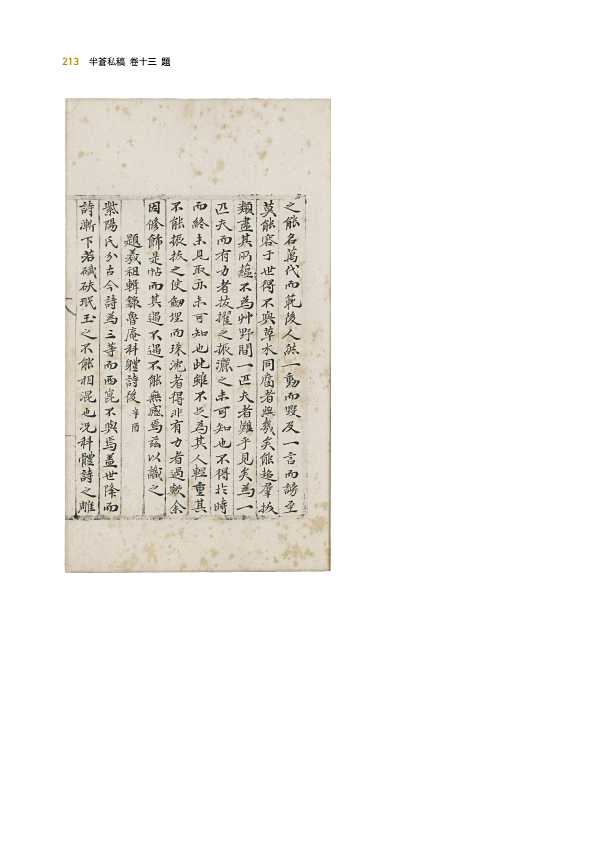 213 半蒼私稿 卷十三 題
之能名萬代而範後人然一動而毁及一言而謗至
莫能容于世得不與草木同腐者無幾矣能超羣拔
類盡其所蘊不為艸野間一匹夫者難乎見矣為一
匹夫而有力者拔擢之振灑之未可知也不得於時
而終未見取亦未可知也此雖不足為其人輕重其
不能振拔之使劒埋而珠沈者得非有力者過歟余
因修飾是帖而其遇不遇不能無感焉玆以識之
題羲祖輯錄魯庵科體詩後 辛酉
紫陽氏分古今詩為三等而西崑不與焉盖世降而
詩漸下若碔砆珉玉之不能相混也况科體詩之雕